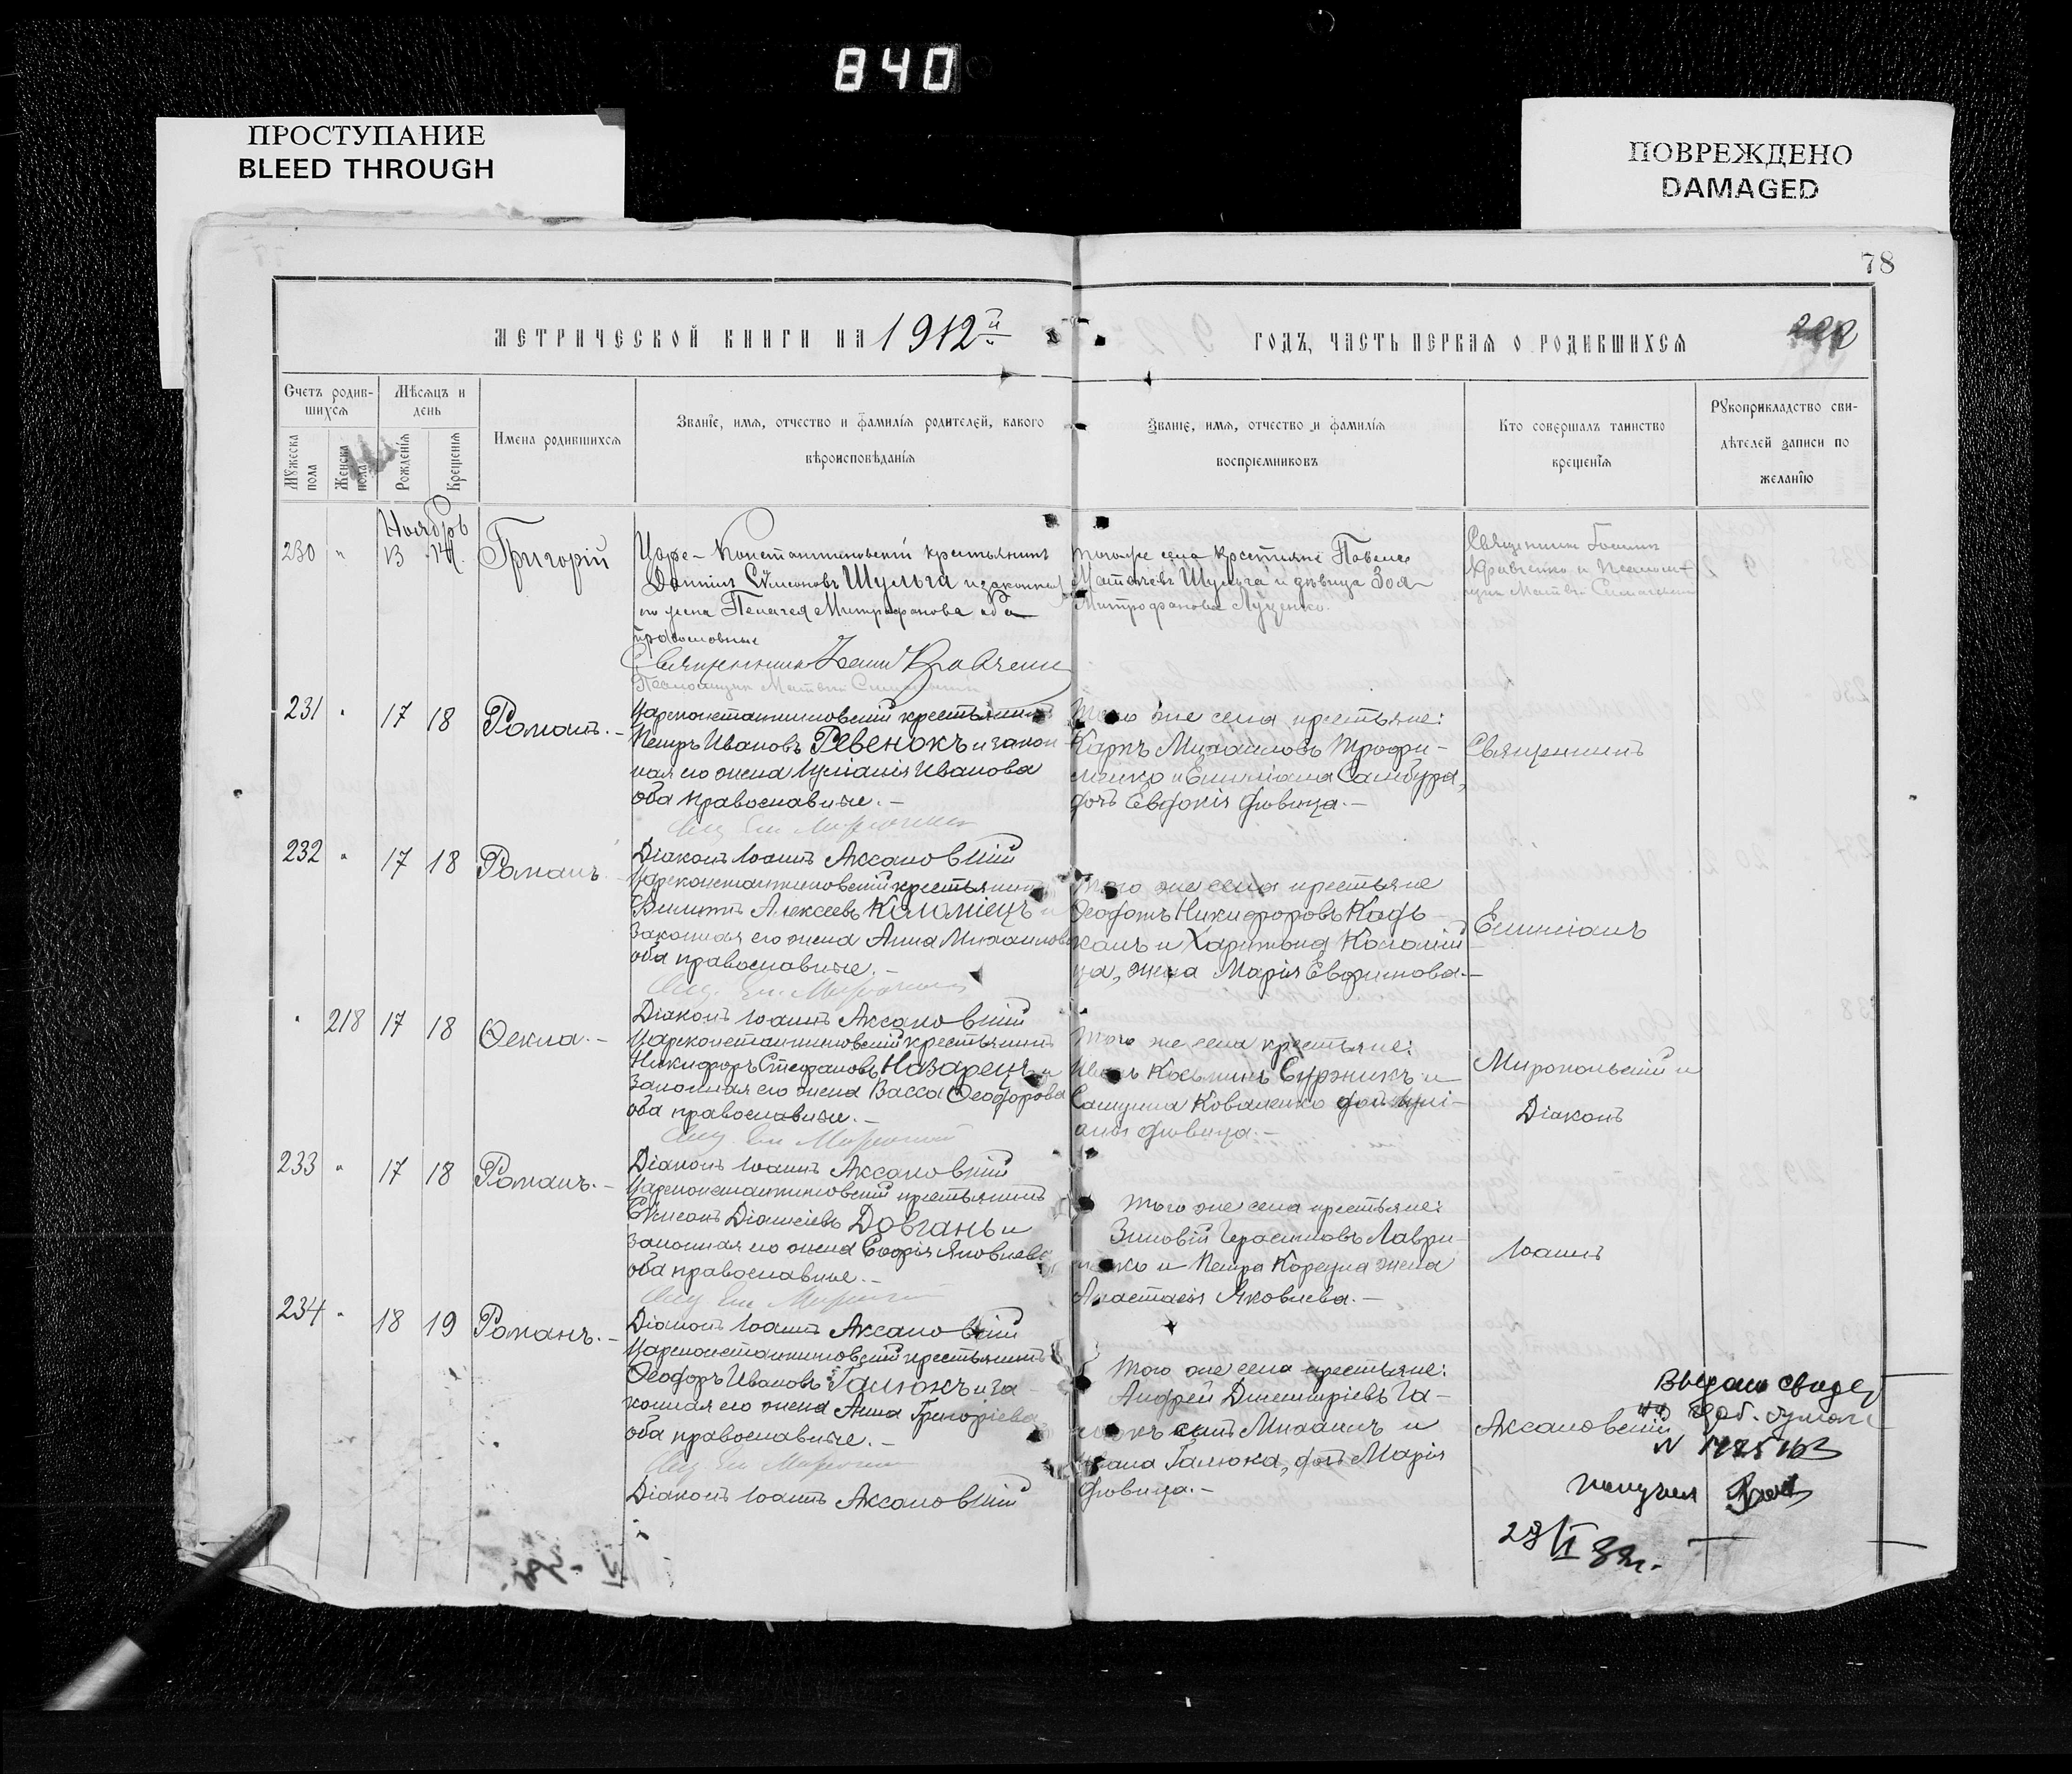 840
ПРОСТУПАНИЕ
BLEED THROUGH
ПОВРЕЖДЕНО
DAMAGED
78
МЕТРИЧЕСКОЙ КНИГИ НА 1912й
ГОДЪ, ЧАСТЬ ПЕРВАЯ О РОДИВШИХСЯ
222
Счетъ родив-
шихся
Мужеска пола
Женска пола
Мѣсяцъ и
день
Рожденія
Крещенія
Имена родившихся
Званіе, имя, отчество и фамилія родителей, какого
вѣроисповѣданія
Званіе, имя, отчество и фамилія
воспріемниковъ
Кто совершалъ таинство
крещенія
Рукоприкладство сви-
дѣтелей записи по
желанію
Ноябрь
230 " 13 14 Григорій
Царе-Константиновскій крестьянинъ
Даніилъ Сѵмеоновъ Шульга и законная
его жена Пелагея Митрофанова оба
православные
Священникъ Іоаннъ Кравченко
Псаломщикъ Матвѣй
того же села крестьяне Павелъ
Матвѣевъ Шульга и дѣвица Зоя
Митрофанова Луценко.
Священникъ Іоаннъ
Кравченко и Псаломщикъ
Матвѣй
231 " 17 18 Романъ.-
Цареконстантиновскій крестьянинъ
Петръ Ивановъ Ревенокъ и закон-
ная его жена Іуліанія Иванова
оба православные.-
Діаконъ Іоаннъ Аксановскій
Того же села крестьяне:
Карпъ Михаиловъ Трофи-
менко и Емиліана Самбура,
дочь Евдокія дѣвица.-
Священникъ
232 " 17 18 Романъ.
Цареконстантиновскій крестьянинъ
Филиппъ Алексеевъ Коломіецъ и
законная его жена Анна Михаилова
оба православные.-
Діаконъ Іоаннъ Аксановскій
Того же села крестьяне
Ѳеофанъ Никифоровъ
и Харитона Коломій-
ца, жена Марія Евфимова.-
Емиліанъ
" 218 17 18 Ѳекла.-
Цареконстантиновскій крестьянинъ
Никифоръ Стефановъ Назарецъ и
законная его жена Васса Ѳеодорова
оба православные.-
Діаконъ Іоаннъ Аксановскій
Того же села крестьяне:
Козьминъ Суржикъ и
Самуила Коваленко дочь Іулі-
анія дѣвица.-
Миропольскій и
Діаконъ
233 " 17 18 Романъ.-
Цареконстантиновскій крестьянинъ
Сѵмеонъ Діонисіевъ Довгань и
законная его жена Софія Яковлева
оба православные.-
Діаконъ Іоаннъ Аксановскій
Того же села крестьяне:
Зиновій Герасимовъ Лаври-
ненко и Петра Корсуна жена
Анастасія Яковлева.-
Іоаннъ
234 " 18 19 Романъ.-
Цареконстантиновскій крестьянинъ
Ѳеодоръ Ивановъ Галюкъ и за-
конная его жена Анна Григоріева
оба православные.-
Діаконъ Іоаннъ Аксановскій
Того же села крестьяне:
Андрей Димитріевъ Га-
люкъ сынъ Михаилъ и
Ивана Галюка, дочь Марія
дѣвица.-
Аксановскій
Выдано свидет
N
получил